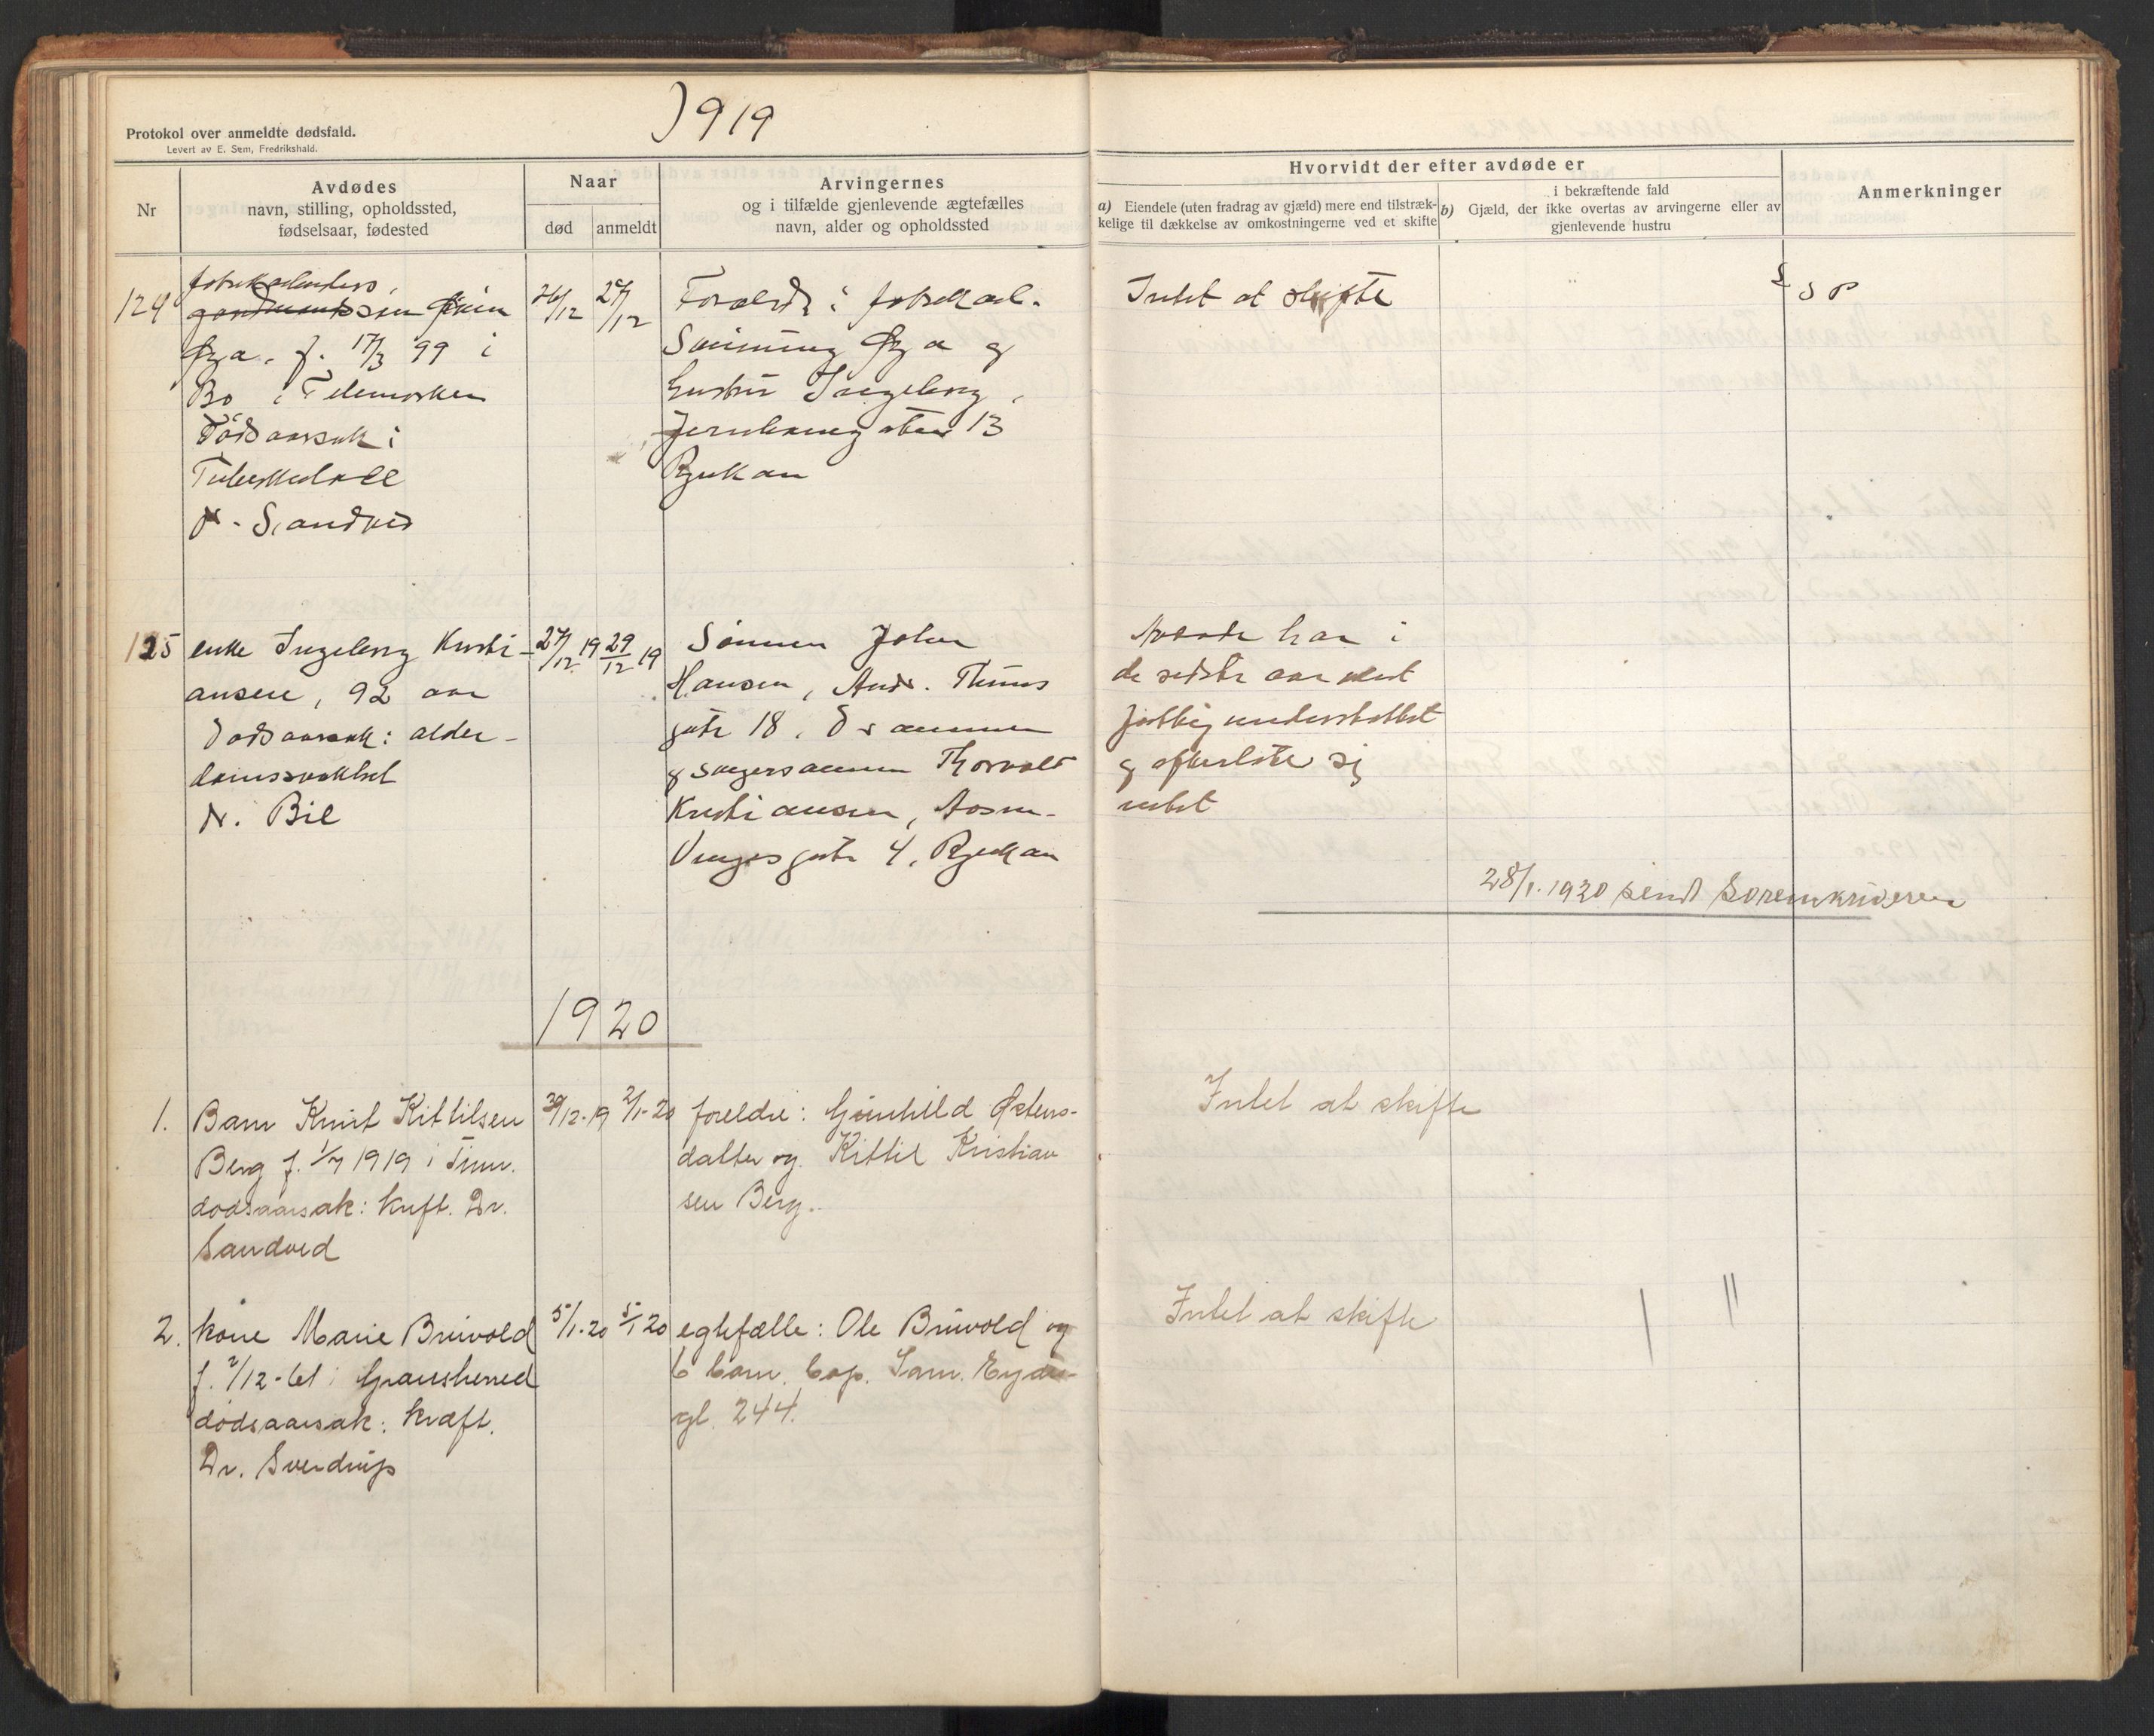 1919
Protokol over anmeldte dødsfald.
Levert av E. Sem, Fredrikshald.
Nr
Avdødes
navn, stilling, opholdssted,
fødselsaar, fødested
Naar
død
anmeldt
Arvingernes
og i tilfælde gjenlevende ægtefælles
navn, alder og opholdssted
Hvorvidt der efter avdøde er
a) Eiendele (uten fradrag av gjæld) mere end tilstræk-
kelige til dækkelse av omkostningerne ved et skifte
i bekræftende fald
b) Gjæld, der ikke overtas av arvingerne eller av
gjenlevende hustru
Anmerkninger
124
søn
f. 17/3 99 i
Bø i Telemarken
Dødsaarsak:
Tuberkulose
Sandved
26/12
27/12
Forældre:
og
hustru Ingeborg,
13
Rjukan
Intet at skifte
125
enke Ingeborg Kristi-
ansen, 92 aar
Dødsaarsak: alder-
domssvakhet
Dr. Bie
27/12 19
29/12 19
Sønnen Johan
Hansen, Andr.
gate 18, Drammen
og svigersønnen Thorvald
Kristiansen, Aasm.
Vinjes gate 4, Rjukan
Avdøde har i
de sidste aar
understøttet
og efterlater sig
intet
28/1. 1920 sendt Sorenskriveren
1920
1. Barn Knut Kittilsen
Berg f. 1/7 1919 i Tinn.
dødsaarsak: Dr.
Sandved
30/12-19
2/1-20
foreldre: Gunhild Østens-
datter og Kittil Kristian
sen Berg.
Intet at skifte
2. kone Marie Bruvold
f. 2/12-61 i Gransherred
dødsaarsak: kræft.
Dr. Sverdrup
5/1-20
5/1 20
egtefælle: Ole Bruvold og
6 barn. Sam. Eydes
gt. 244.
Intet at skifte
"